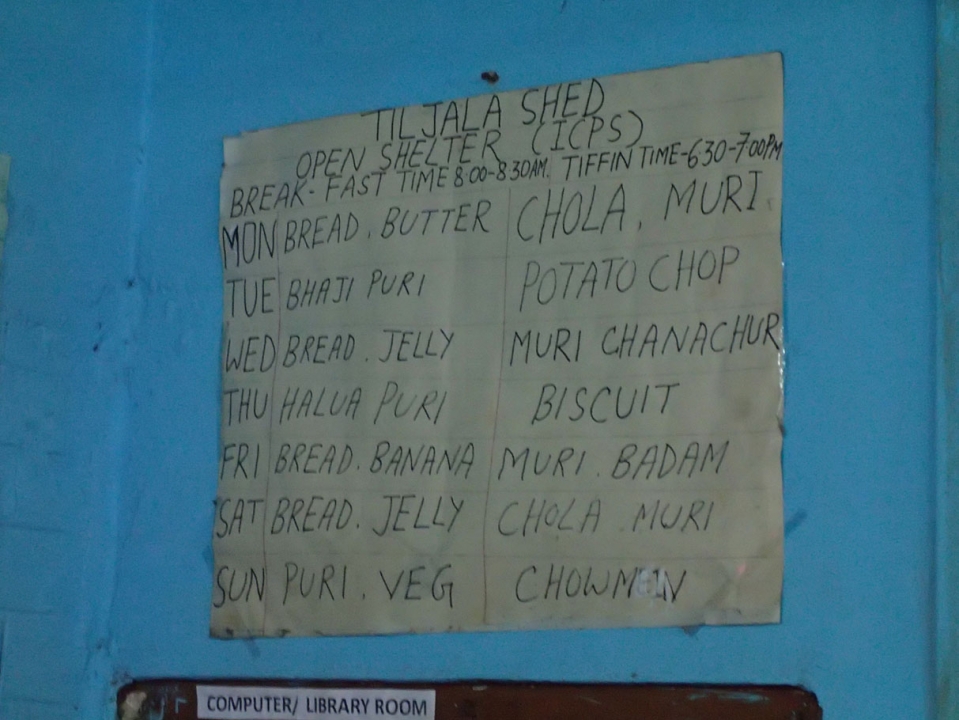 TILJALA SHED
OPEN SHELTER (ICPS)
BREAK-FAST TIME 8:00-8:30AM. TIFFIN TIME-6:30-7:00PM
MON BREAD. BUTTER CHOLA. MURI.
TUE BHAJI PURI POTATO CHOP
WED BREAD. JELLY MURI CHANACHUR
THU HALUA PURI BISCUIT
FRI BREAD. BANANA MURI. BADAM
SAT BREAD. JELLY CHOLA. MURI
SUN PURI. VEG CHOWMEIN
COMPUTER/ LIBRARY ROOM